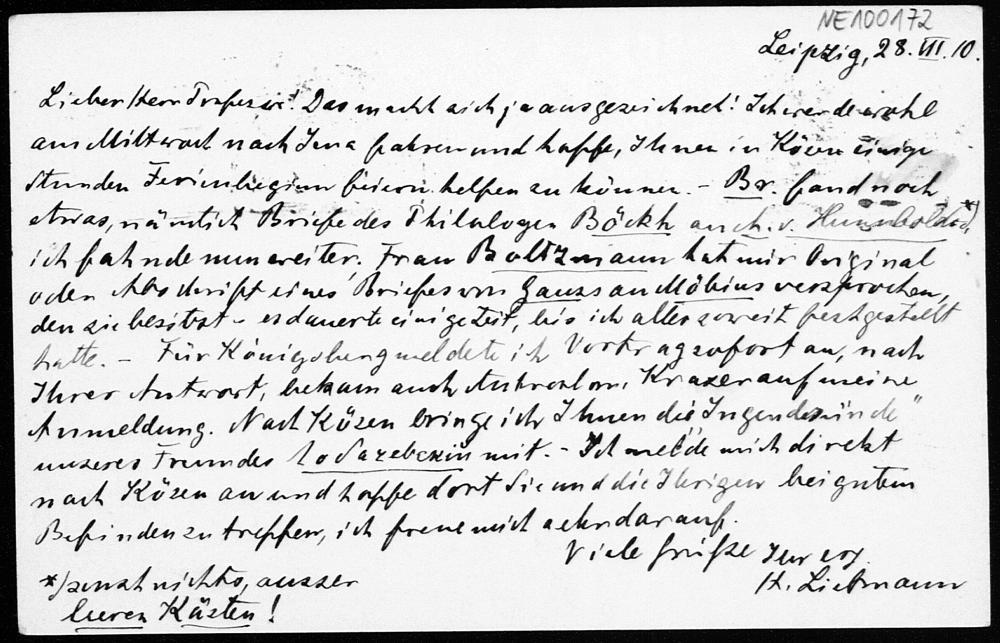 NE100172
Leipzig, 28. VII. 10.
Lieber Herr Professor! Das macht sich ja ausgezeichnet! Ich werde wohl
am Mittwoch nach Jena fahren und hoffe, Ihnen in Kösen einige
Stunden Ferienbeginn feiern helfen zu können. – Br. fand noch
etwas, nämlich Briefe des Philologen Böckh auch v. Humboldt *)
ich fahnde nun weiter. Frau Boltzmann hat mir Original
oder Abschrift eines Briefes von Gauss an Möbius versprochen,
den sie besitzt – es dauerte einige Zeit, bis ich alles soweit festgestellt
hatte. – Für Königsberg meldete ich Vortrag sofort an, nach
Ihrer Antwort, bekam auch Antwort von Krazer auf meine
Anmeldung. Nach Kösen bringe ich Ihnen die Jugendsünde"
unseres Freundes Lobatschefskij mit. – Ich melde mich direkt
nach Kösen an und hoffe dort Sie und die Ihrigen bei gutem
Befinden zu treffen, ich freue mich sehr darauf.
Viele Grüsse Ihr erg.
H. Liebmann
*) sonst nichts, ausser
leeren Kästen!